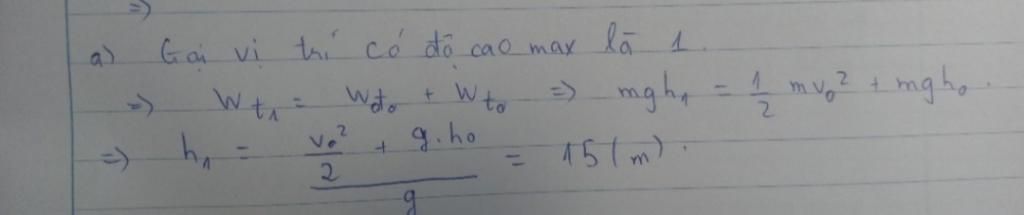 =>
a) Gọi vị trí có độ cao max là 1.
=> Wt₁ = Wđ₀ + Wt₀ => mgh₁ = 1/2 mv₀² + mgh₀.
=> h₁ = (v₀²/2 + g.h₀)/g = 15 (m).